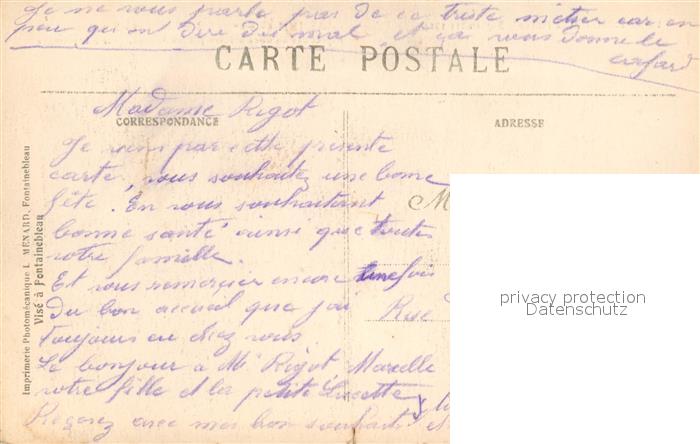 Je ne vous parle pas de ce triste métier car on
peu qui dire du mal et ça vous donne le
cafard
CARTE POSTALE
Madame Rigot
CORRESPONDANCE
ADRESSE
Je viens par cette présente
carte, vous souhaitez une bonne
fête. En vous souhaitant
bonne santé ainsi que toutes
votre famille.
Et vous remercier encore une fois
Du bon accueil que j'ai
Toujours eu chez vous
Le bonjour à Mr Rigot, Marcelle
votre fille et la petite Lucette
Reçevez avec mes bon souhaits
M
Rue
privacy protection
Datenschutz
Imprimerie Photomécanique L. MENARD, Fontainebleau
Visé à Fontainebleau